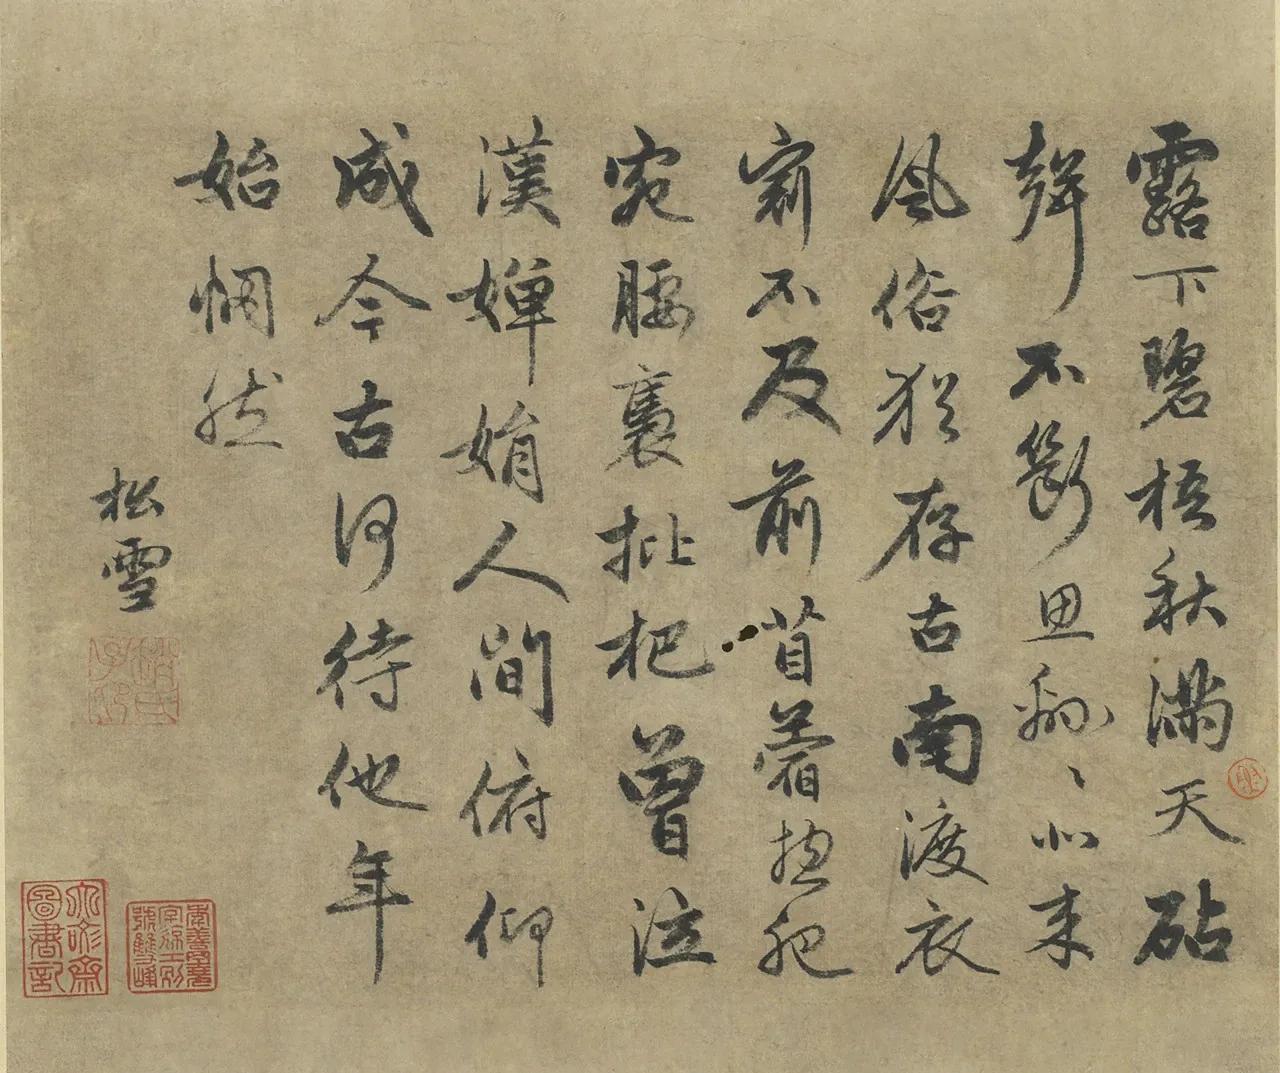 露下碧梧秋滿天砧
聲不斷思綿〻北來
風俗猶存古南渡衣
冠不及前苜蓿揔肥
宛腰褭枇杷曾泣
漢嬋娟人間俯仰
成今古何待他年
始惘然
松雪
趙氏子昂